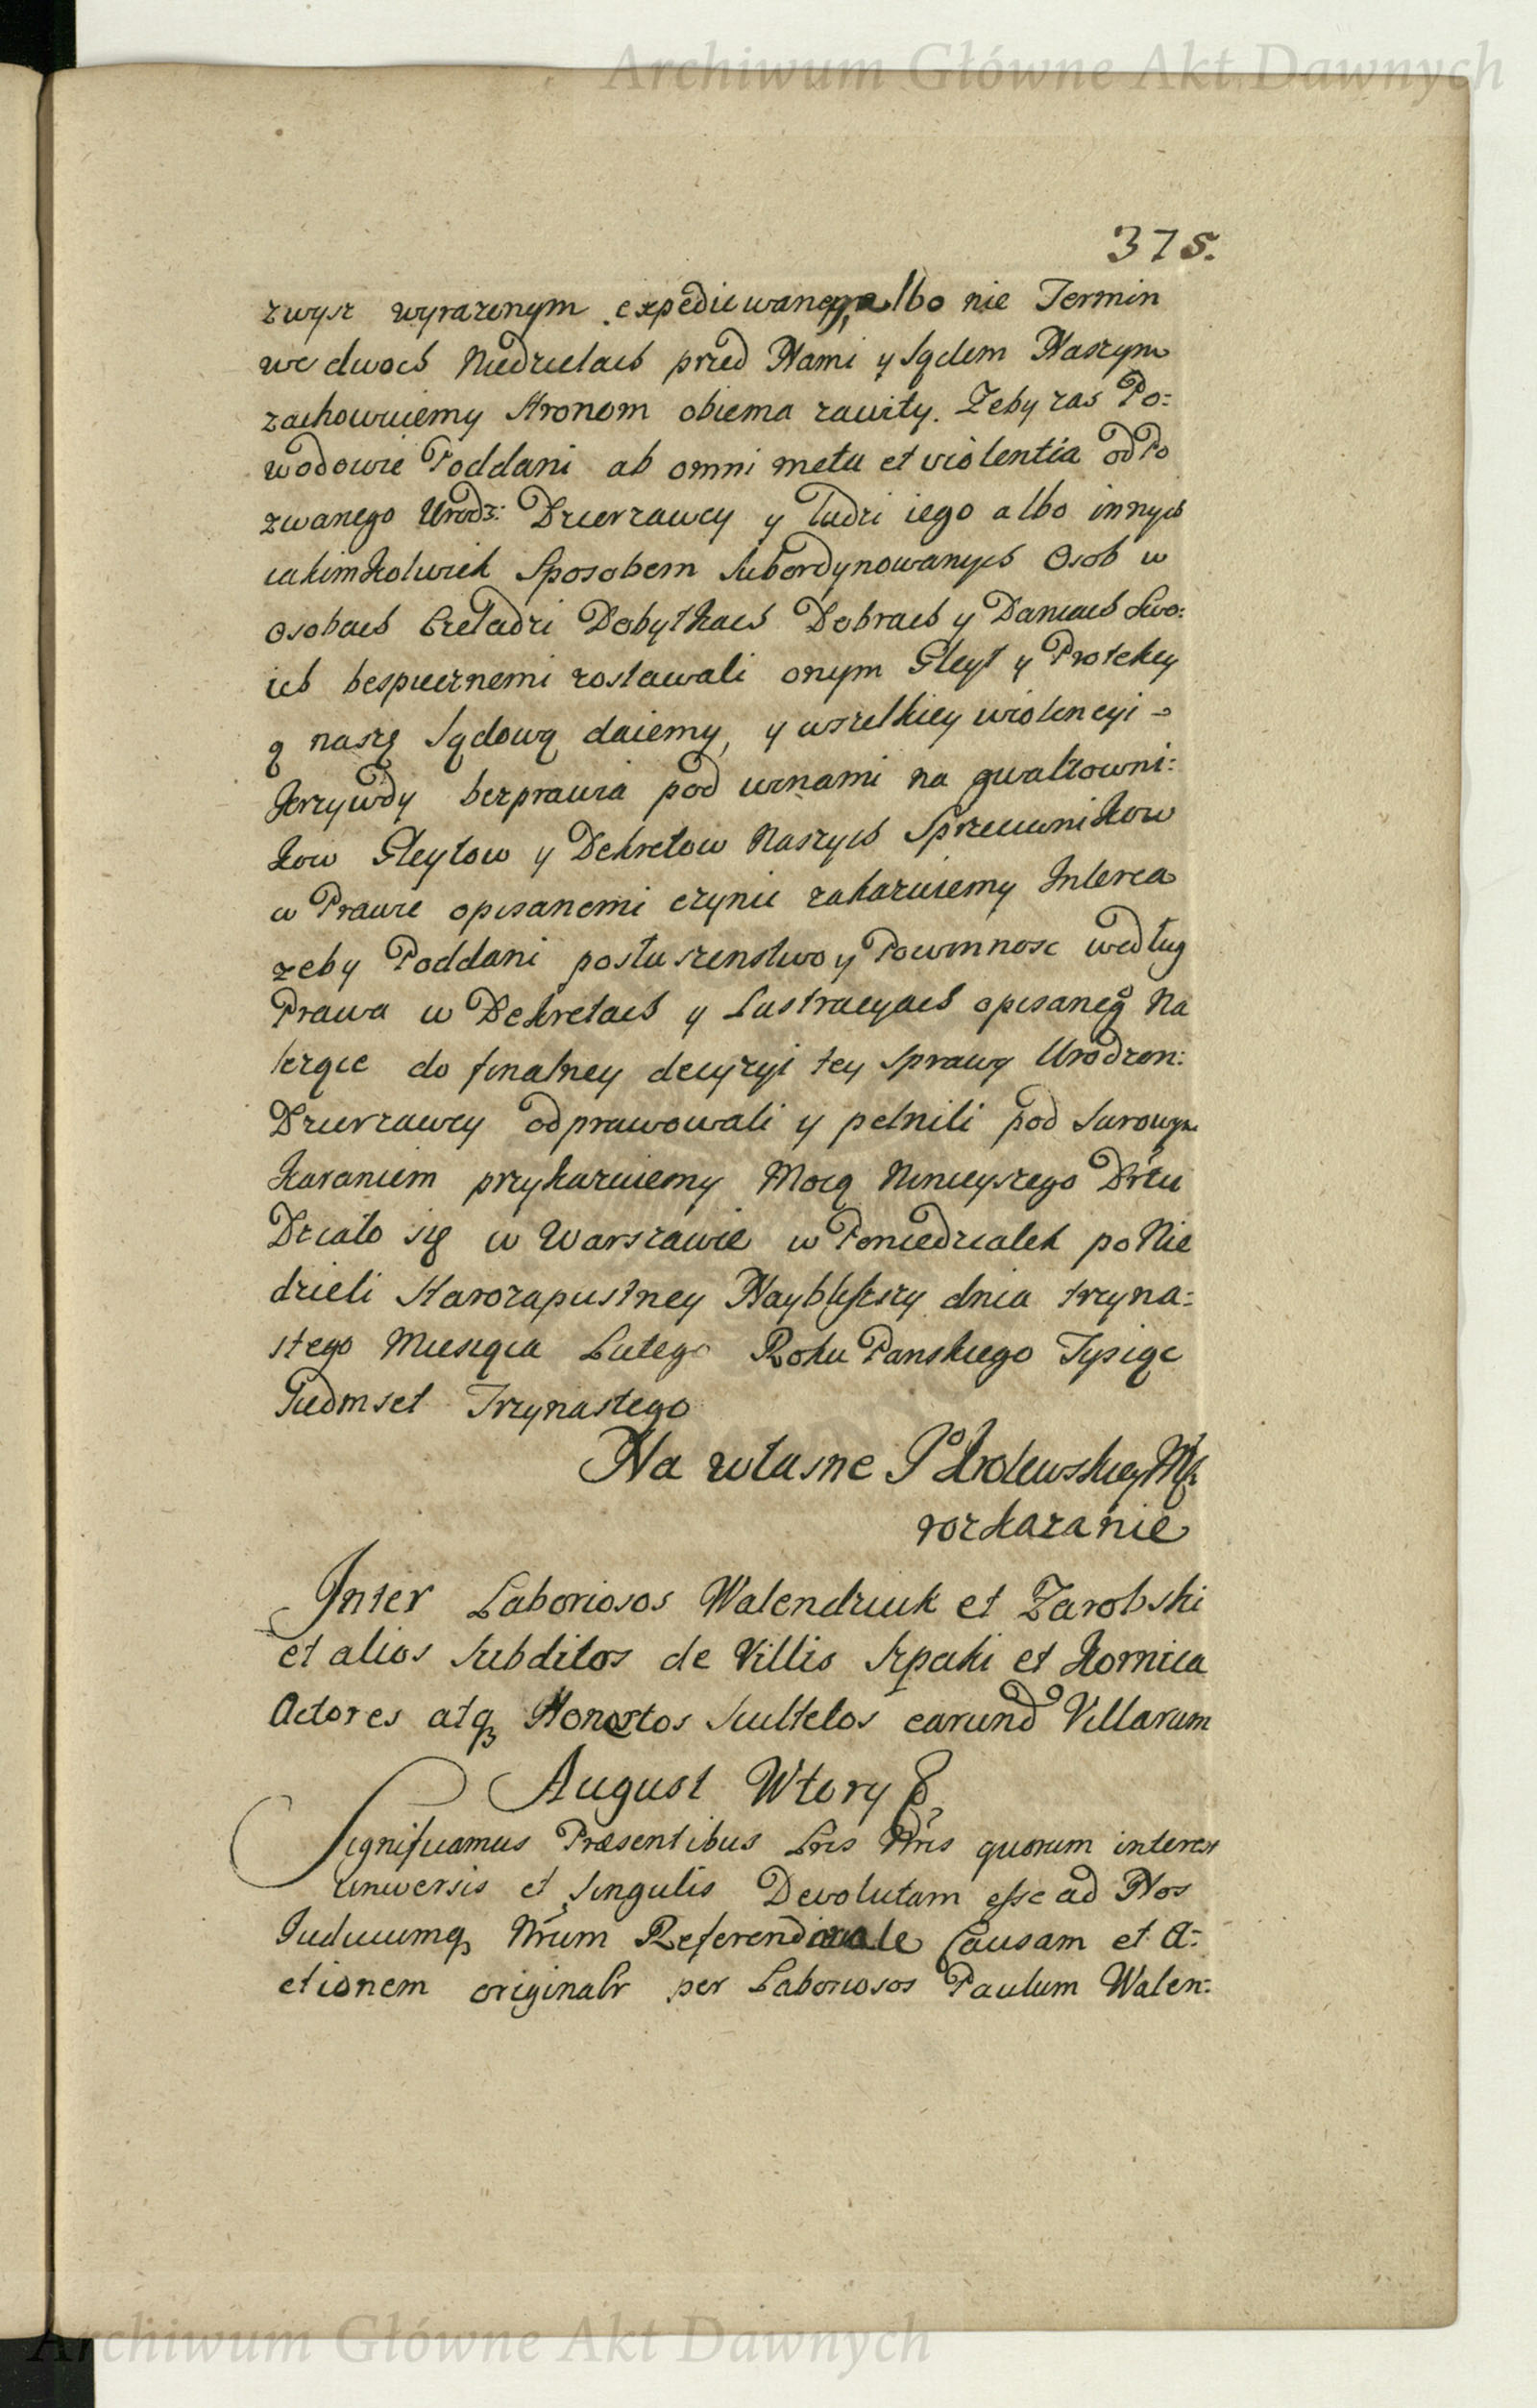 Archiwum Główne Akt Dawnych
375.
zwysz wyrazenym expediowanego albo nie Termin
we dwoch Niedzielach przed Nami y Sądem Naszym
zachowuiemy Stronom obiema zawity. Zeby zas Po:
wodowie Poddani ab omni metu et violentia od Po
zwanego Urodz: Dzierzawcy y ludzi iego albo innych
iakimkolwiek Sposobem Subordynowanych Osob w
osobach Czeladzi Dobytkach Dobrach y Daniach Swo:
ich bespiecznemi zostawali onym Gleyt y Protekcy
ą naszą Sądową daiemy, y wszelkiey violencyi
krzywdy bezprawia pod winami na gwaltowni:
kow Gleytow y Dekretow Naszych Sprzeciwnikow
w Prawie opisanemi czynic zakazuiemy Interea
zeby Poddani posłuszenstwo y Powinnosc według
Prawa w Dekretach y Lustracyach opisaneg̊ Na
lezące do finalney decyzyi tey Sprawy Urodzon:
Dzierzawcy odprawowali y pelnili pod Surowym
karaniem przykazuiemy Mocą Ninieyszego Drtu
Działo się w Warszawie w Poniedzialek po Nie
dzieli Starozapustney Naybliższy dnia trzyna:
stego Miesiąca Lutego Roku Panskiego Tysiąc
Siedmset Trzynastego
Na własne J̊ Krolewskiey Mci
rozkazanie
Inter Laboriosos Walendziuk et Zarobski
et alios Subditos de Villis Szpaki et Kornica
Actores atq Honestos Scultetos earund Villarum
August Wtory &
Significamus Præsentibus Lris Nris quorum interest
universis et singulis Devolutam esse ad Nos
Iudiciumq Nrum Referendariale Causam et A:
ctionem originalr per Laboriosos Paulum Walen:
Archiwum Główne Akt Dawnych